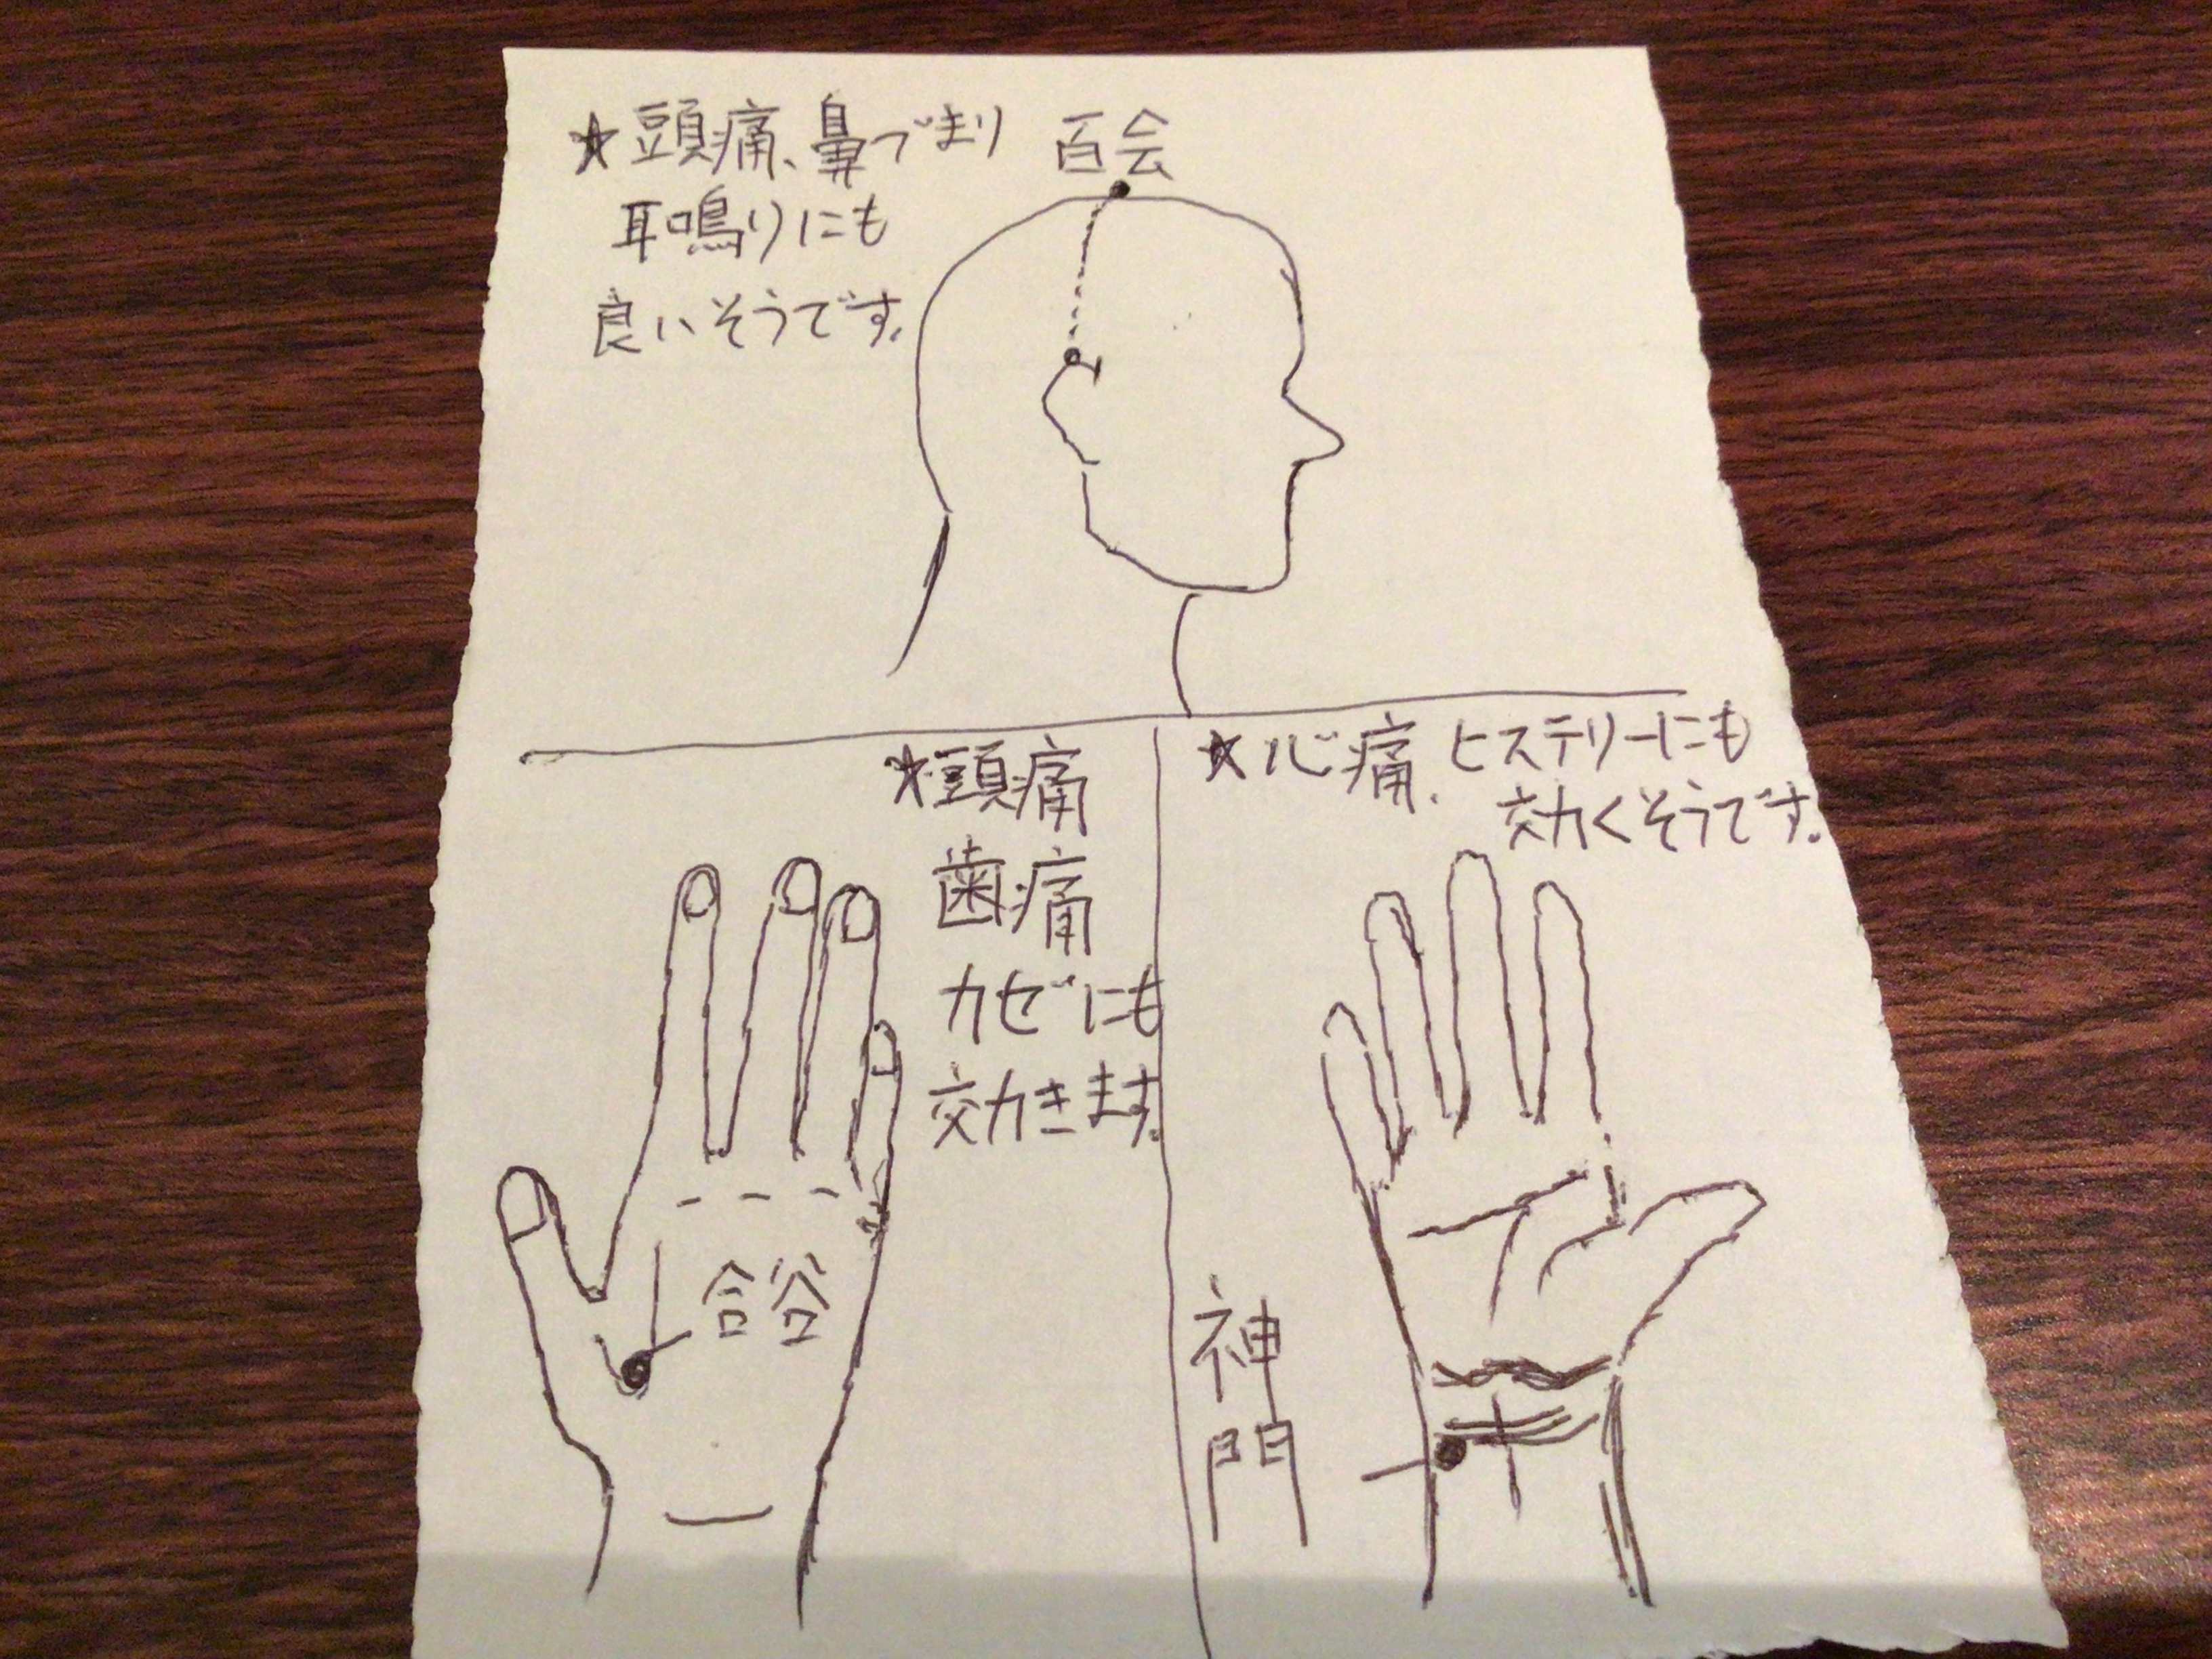 ★頭痛、鼻づまり
耳鳴りにも
良いそうです。
百会
★頭痛
歯痛
カゼにも
効きます。
合谷
★心痛、ヒステリーにも
効くそうです。
神
門